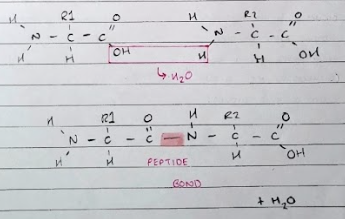 H R1 O H R2 O
N - C - C N - C - C
H H OH H H OH
↳ H2O
H R1 O H R2 O
N - C - C - N - C - C
H H H OH
PEPTIDE
BOND
+ H2O